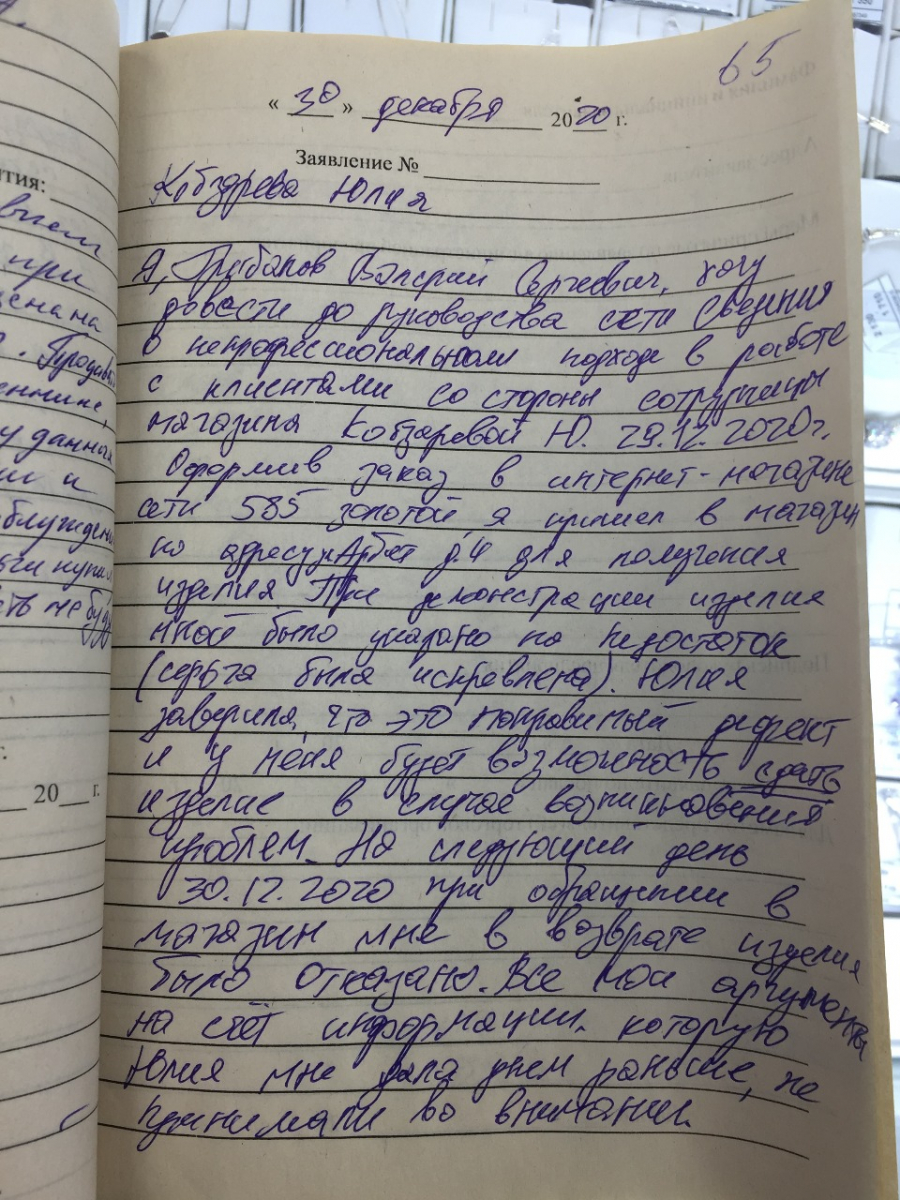 65
« 30 » декабря 2020 г.
Заявление №
Кобзарева Юлия
Я, Валерий Сергеевич, хочу
довести до руководства сети сведения
о непрофессиональном подходе в работе
с клиентами со стороны сотрудницы
магазина Кобзаревой Ю. 29.12.2020г.
Оформив заказ в интернет-магазине
сети 585 золотой, я пришел в магазин
по адресу Арбат д.4 для получения
изделия При демонстрации изделия
мной было указано на недостаток
(серьга была искревлена). Юлия
заверила, что это поправимый дефект
и у меня будет возможность сдать
изделие в случае возникновения
проблем. На следующий день
30.12.2020 при обращении в
магазин мне в возврате изделия
было отказано. Все мои аргументы
на счёт информации, которую
Юлия мне дала днем раньше, не
принимали во внимании.
тия:
при
цена на
. Продавец
у данных
и и
ть не буду
г.
20 г.